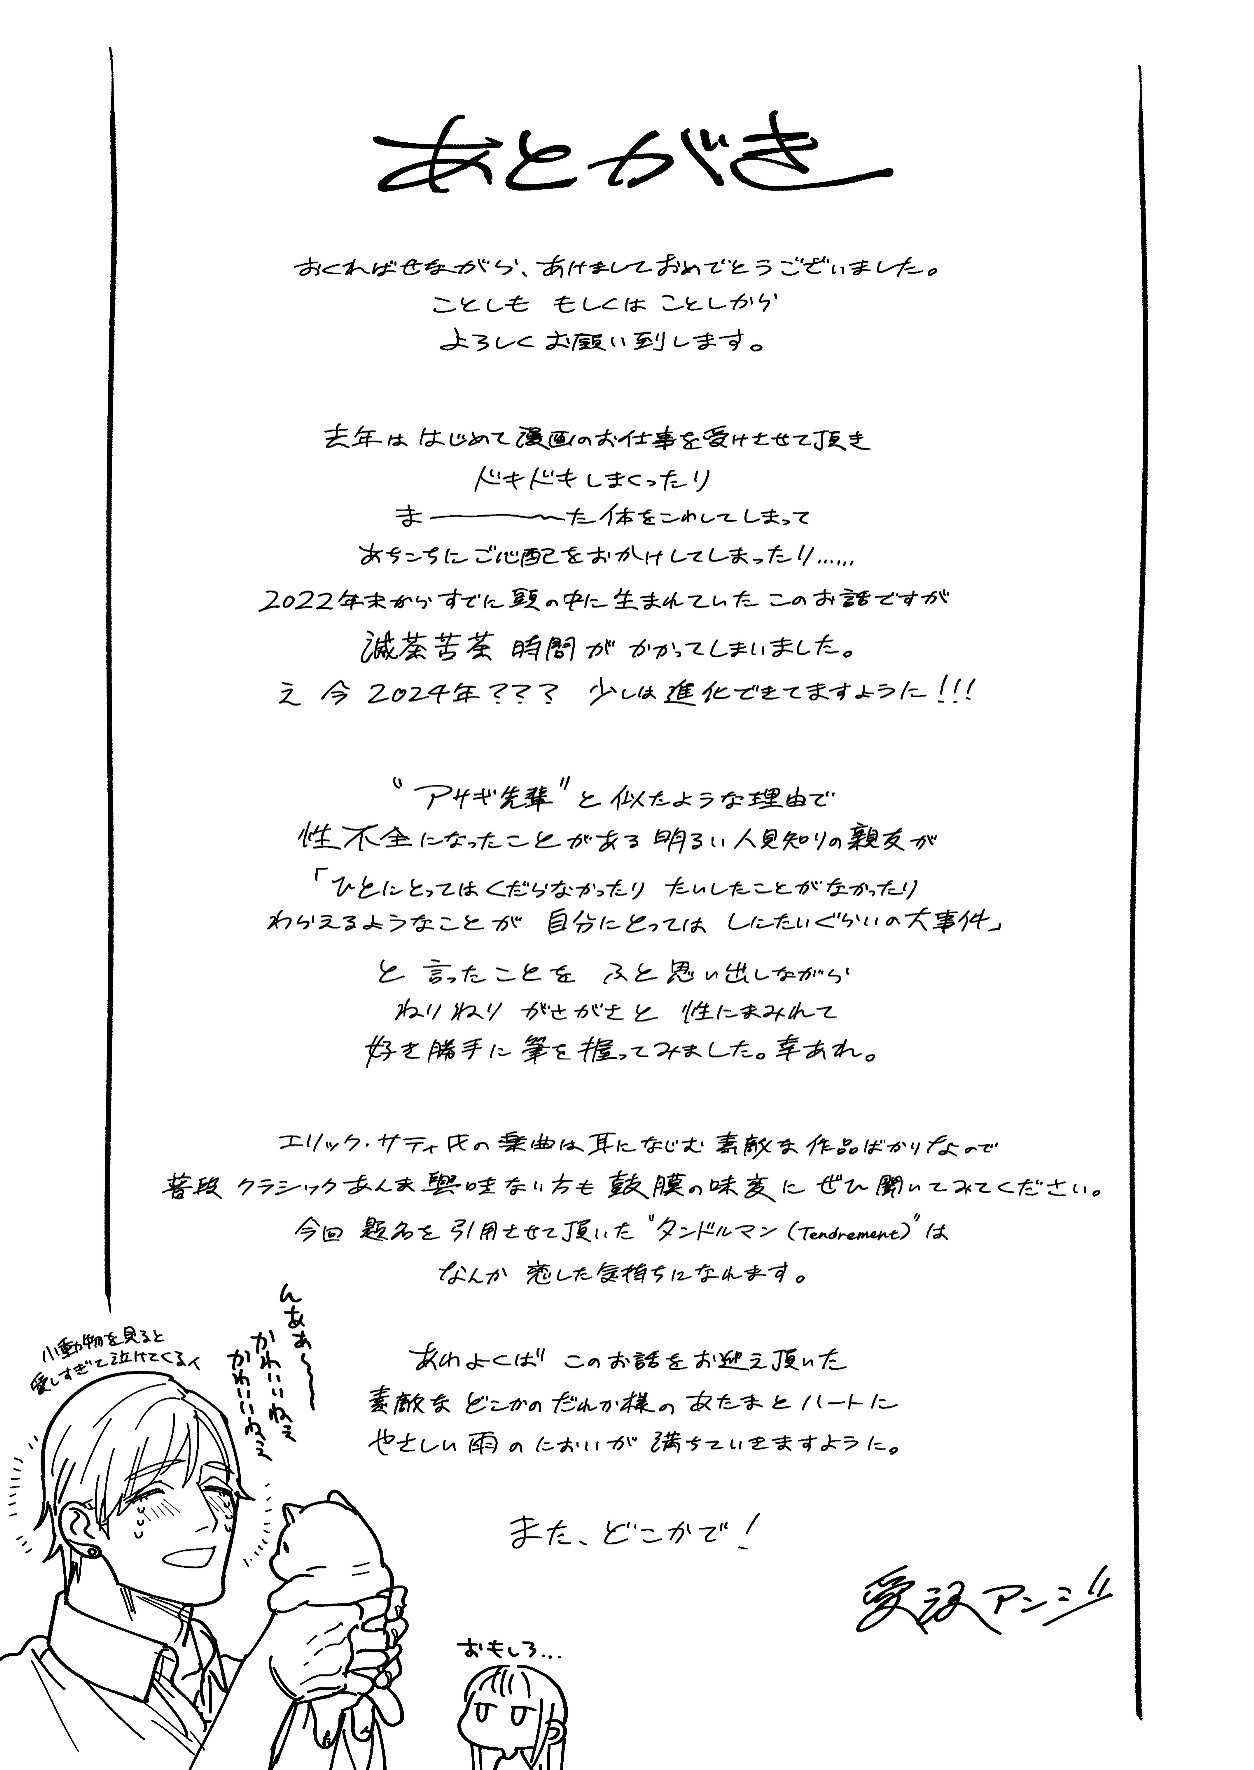 あとがき
おくればせながら、あけましておめでとうございました。
ことしも もしくは ことしから
よろしくお願い致します。
去年は はじめて漫画のお仕事を受けさせて頂き
ドキドキしまくったり
ま────〜た体をこわしてしまって
あちこちにご心配をおかけしてしまったり……
2022年末からすでに頭の中に生まれていたこのお話ですが
滅茶苦茶 時間が かかってしまいました。
え 今 2024年??? 少しは進化できてますように!!!
"アサギ先輩"と似たような理由で
性不全になったことがある明るい人見知りの親友が
「ひとにとってはくだらなかったり たいしたことがなかったり
わらえるようなことが 自分にとっては しにたいぐらいの大事件」
と 言ったことを ふと思い出しながら
ねりねり がさがさと 性にまみれて
好き勝手に筆を握ってみました。幸あれ。
エリック・サティ氏の楽曲は耳になじむ素敵な作品ばかりなので
普段クラシックあんま興味ない方も鼓膜の味変にぜひ聞いてみてください。
今回 題名を引用させて頂いた "タンドルマン(Tendrement)"は
なんか 恋した気持ちになれます。
あわよくば このお話をお迎え頂いた
素敵な どこかのだれか様の あたまとハートに
やさしい雨のにおいが 満ちていきますように。
また、どこかで!
アンジ
小動物を見ると
愛しすぎて泣けてくる人
んああ〜〜
かわいいねぇ
かわいいねぇ
おもしろ…